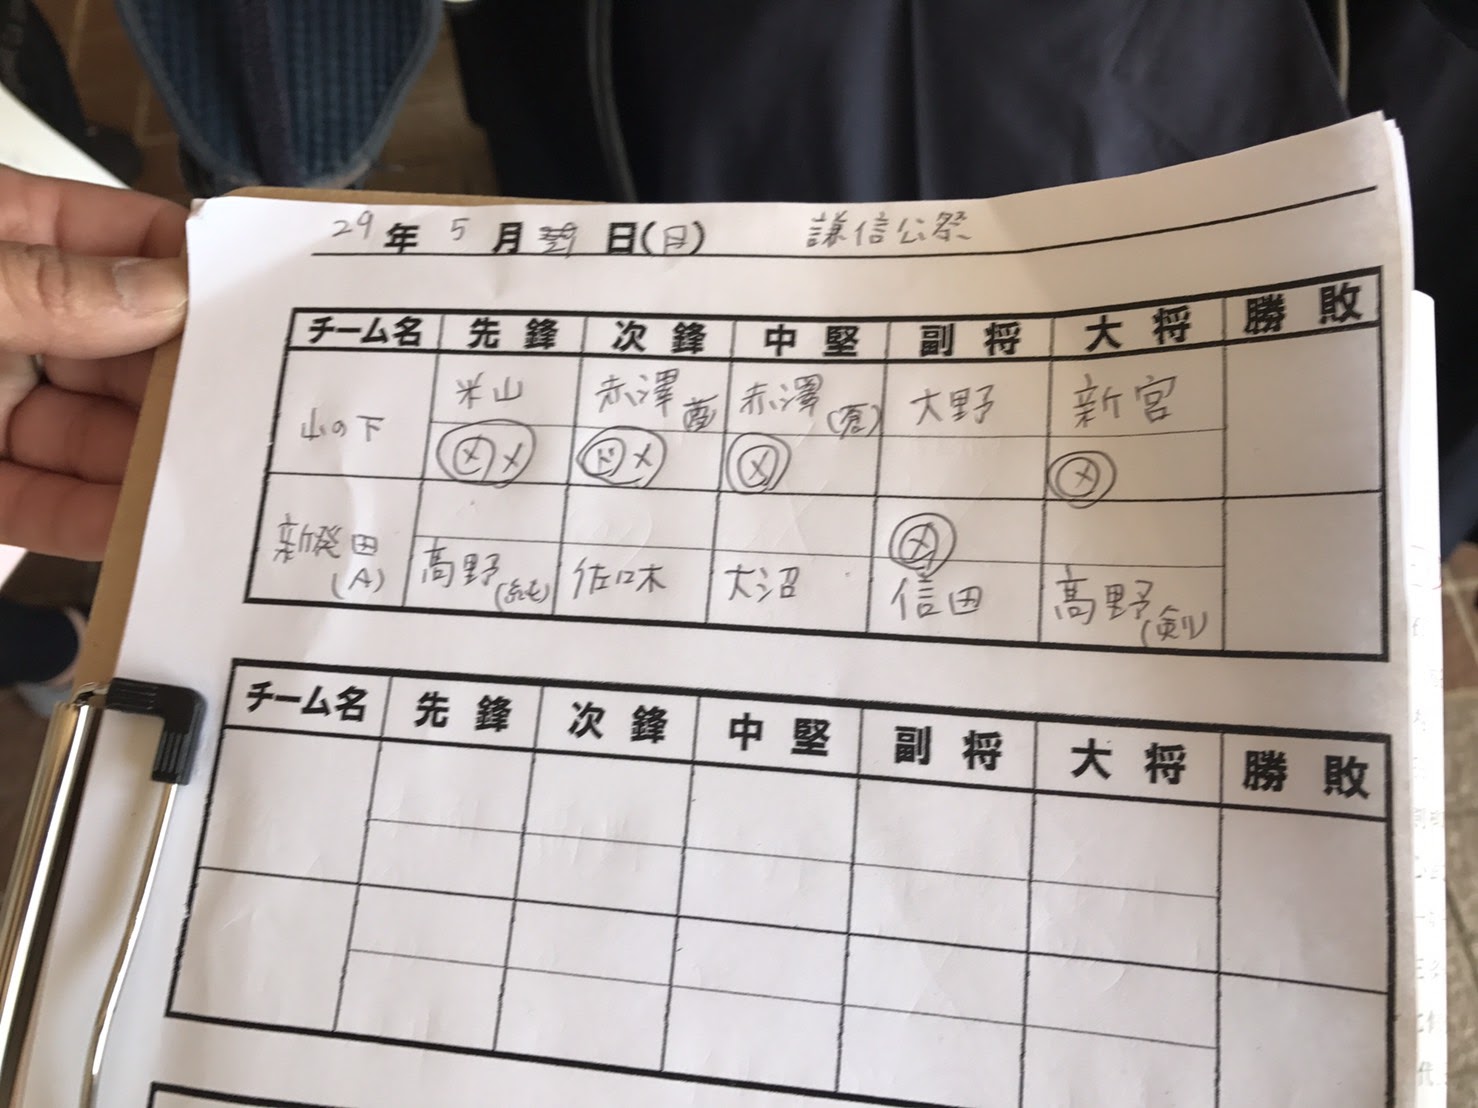 29年 5月 29日(月) 謙信公祭
チーム名 先鋒 次鋒 中堅 副将 大将 勝敗
山の下 米山 赤澤 赤澤 大野 新宮
メメ ドメ メ メ
メ
新発田(A) 高野(純) 佐々木 大沼 信田 高野(剣)
チーム名 先鋒 次鋒 中堅 副将 大将 勝敗